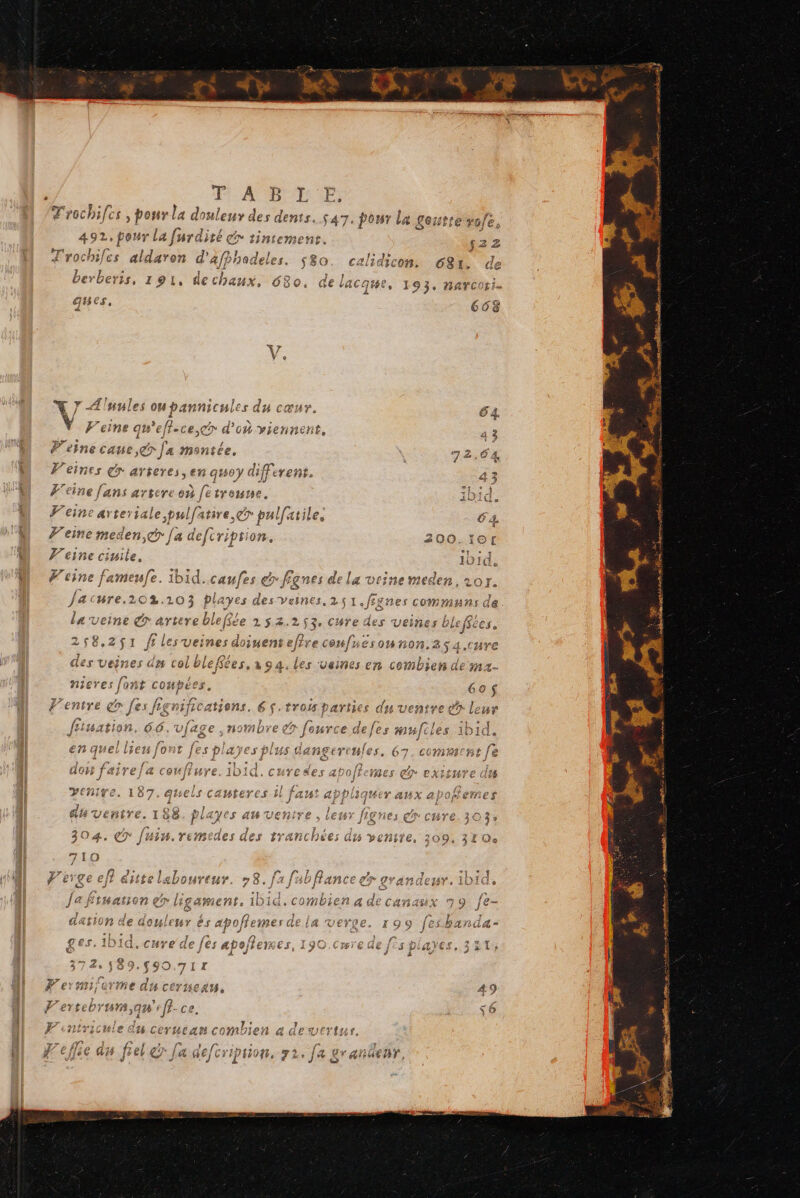 TABLE.
Trochiſcs, pour la douleur des dents. 547. pour la goutte roſe,
492. pour la ſurdité & tintement. 522
Trochiſcs aldaron d'aſphodeles. 580. calidicon. 681. de
berberis, 191. de chaux, 680. de lacque, 193. narcoti-
ques. 668
V.
VAluules ou pannicules du cœur. 64
Veine qu'eſt-ce, & d'où viennent, 43
Veine caue, & ſa montée. 72.64
Veines & arteres, en quoy different. 43
Veine ſans artere où ſe trouue. ibid.
Veine arteriale, pulſatiue, & pulſatile, 64
Veine meden, & ſa deſcription. 200. 101
Veine ciuile, ibid.
Veine fameuſe. ibid. cauſes & ſignes de la veine meden, 201.
ſa cure. 202. 203 playes des veines, 251. ſignes communs de
la veine & artere bleſſée 252. 253. cure des veines bleſſées.
258, 251 ſi les veines doiuent eſtre conſuës ou non. 254. cure
des veines du col bleſſées, 294. les veines en combien de ma-
nieres ſont coupées. 605
Ventre & ſes ſignifications. 65. trois parties du ventre & leur
ſituation. 66. vſage, nombre & ſource de ſes muſcles ibid.
en quel lieu ſont ſes playes plus dangereuſes. 67. comment ſe
doit faire ſa couſture. ibid. cure des apoſtemes & exiture du
ventre. 187. quels cauteres il faut appliquer aux apoſtemes
du ventre. 188. playes au ventre, leur ſignes & cure. 303.
304. & ſuiu. remedes des tranchées du ventre, 309. 310.
710
Verge eſt ditte laboureur. 78. ſa ſubſtance & grandeur. ibid.
ſa ſituation & ligament. ibid. combien a de canaux 79 ſe-
dation de douleur és apoſtemes de la verge. 199 ſes banda-
ges. ibid. cure de ſes apoſtemes, 190. cure de ſes playes. 321,
372. 589. 590. 711
Vermiforme du cerueau. 49
Vertebrum, qu'eſt-ce. 56
Ventricule du cerueau combien a de vertus.
Veſſie du fiel & ſa deſcription, 72. ſa grandeur,